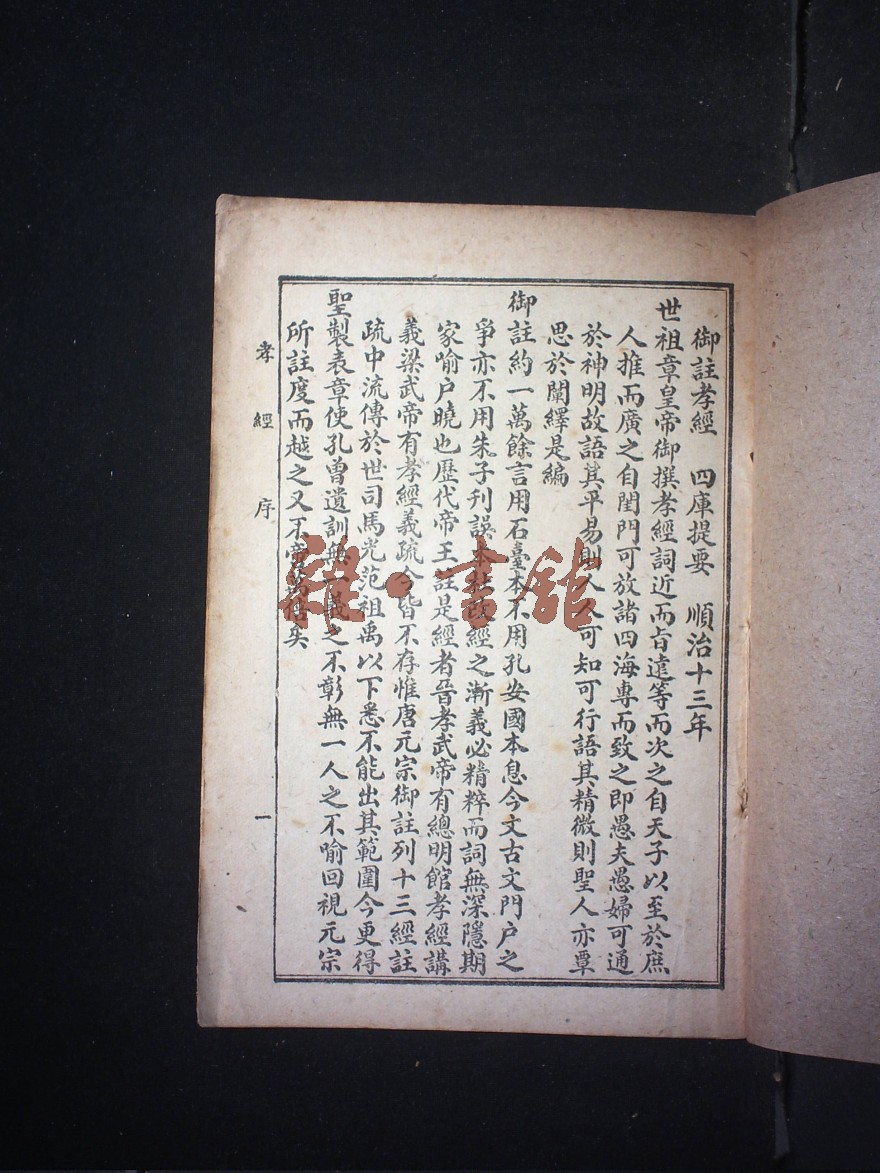 御註孝經　四庫提要　順治十三年
世祖章皇帝御撰孝經詞近而旨遠等而次之自天子以至於庶
人推而廣之自閨門可放諸四海專而致之即愚夫愚婦可通
於神明故語其平易則人人可知可行語其精微則聖人亦覃
思於闡繹是編
御註約一萬餘言用石臺本不用孔安國本息今文古文門户之
爭亦不用朱子刊誤本杜改經之漸義必精粹而詞無深隱期
家喻户曉也歷代帝王註是經者晉孝武帝有總明館孝經講
義梁武帝有孝經義疏今皆不存惟唐元宗御註列十三經註
疏中流傳於世司馬光范祖禹以下悉不能出其範圍今更得
聖製表章使孔曾遺訓無一義之不彰無一人之不喻回視元宗
所註度而越之又不啻萬倍矣
孝經　序　一
雜·書舘